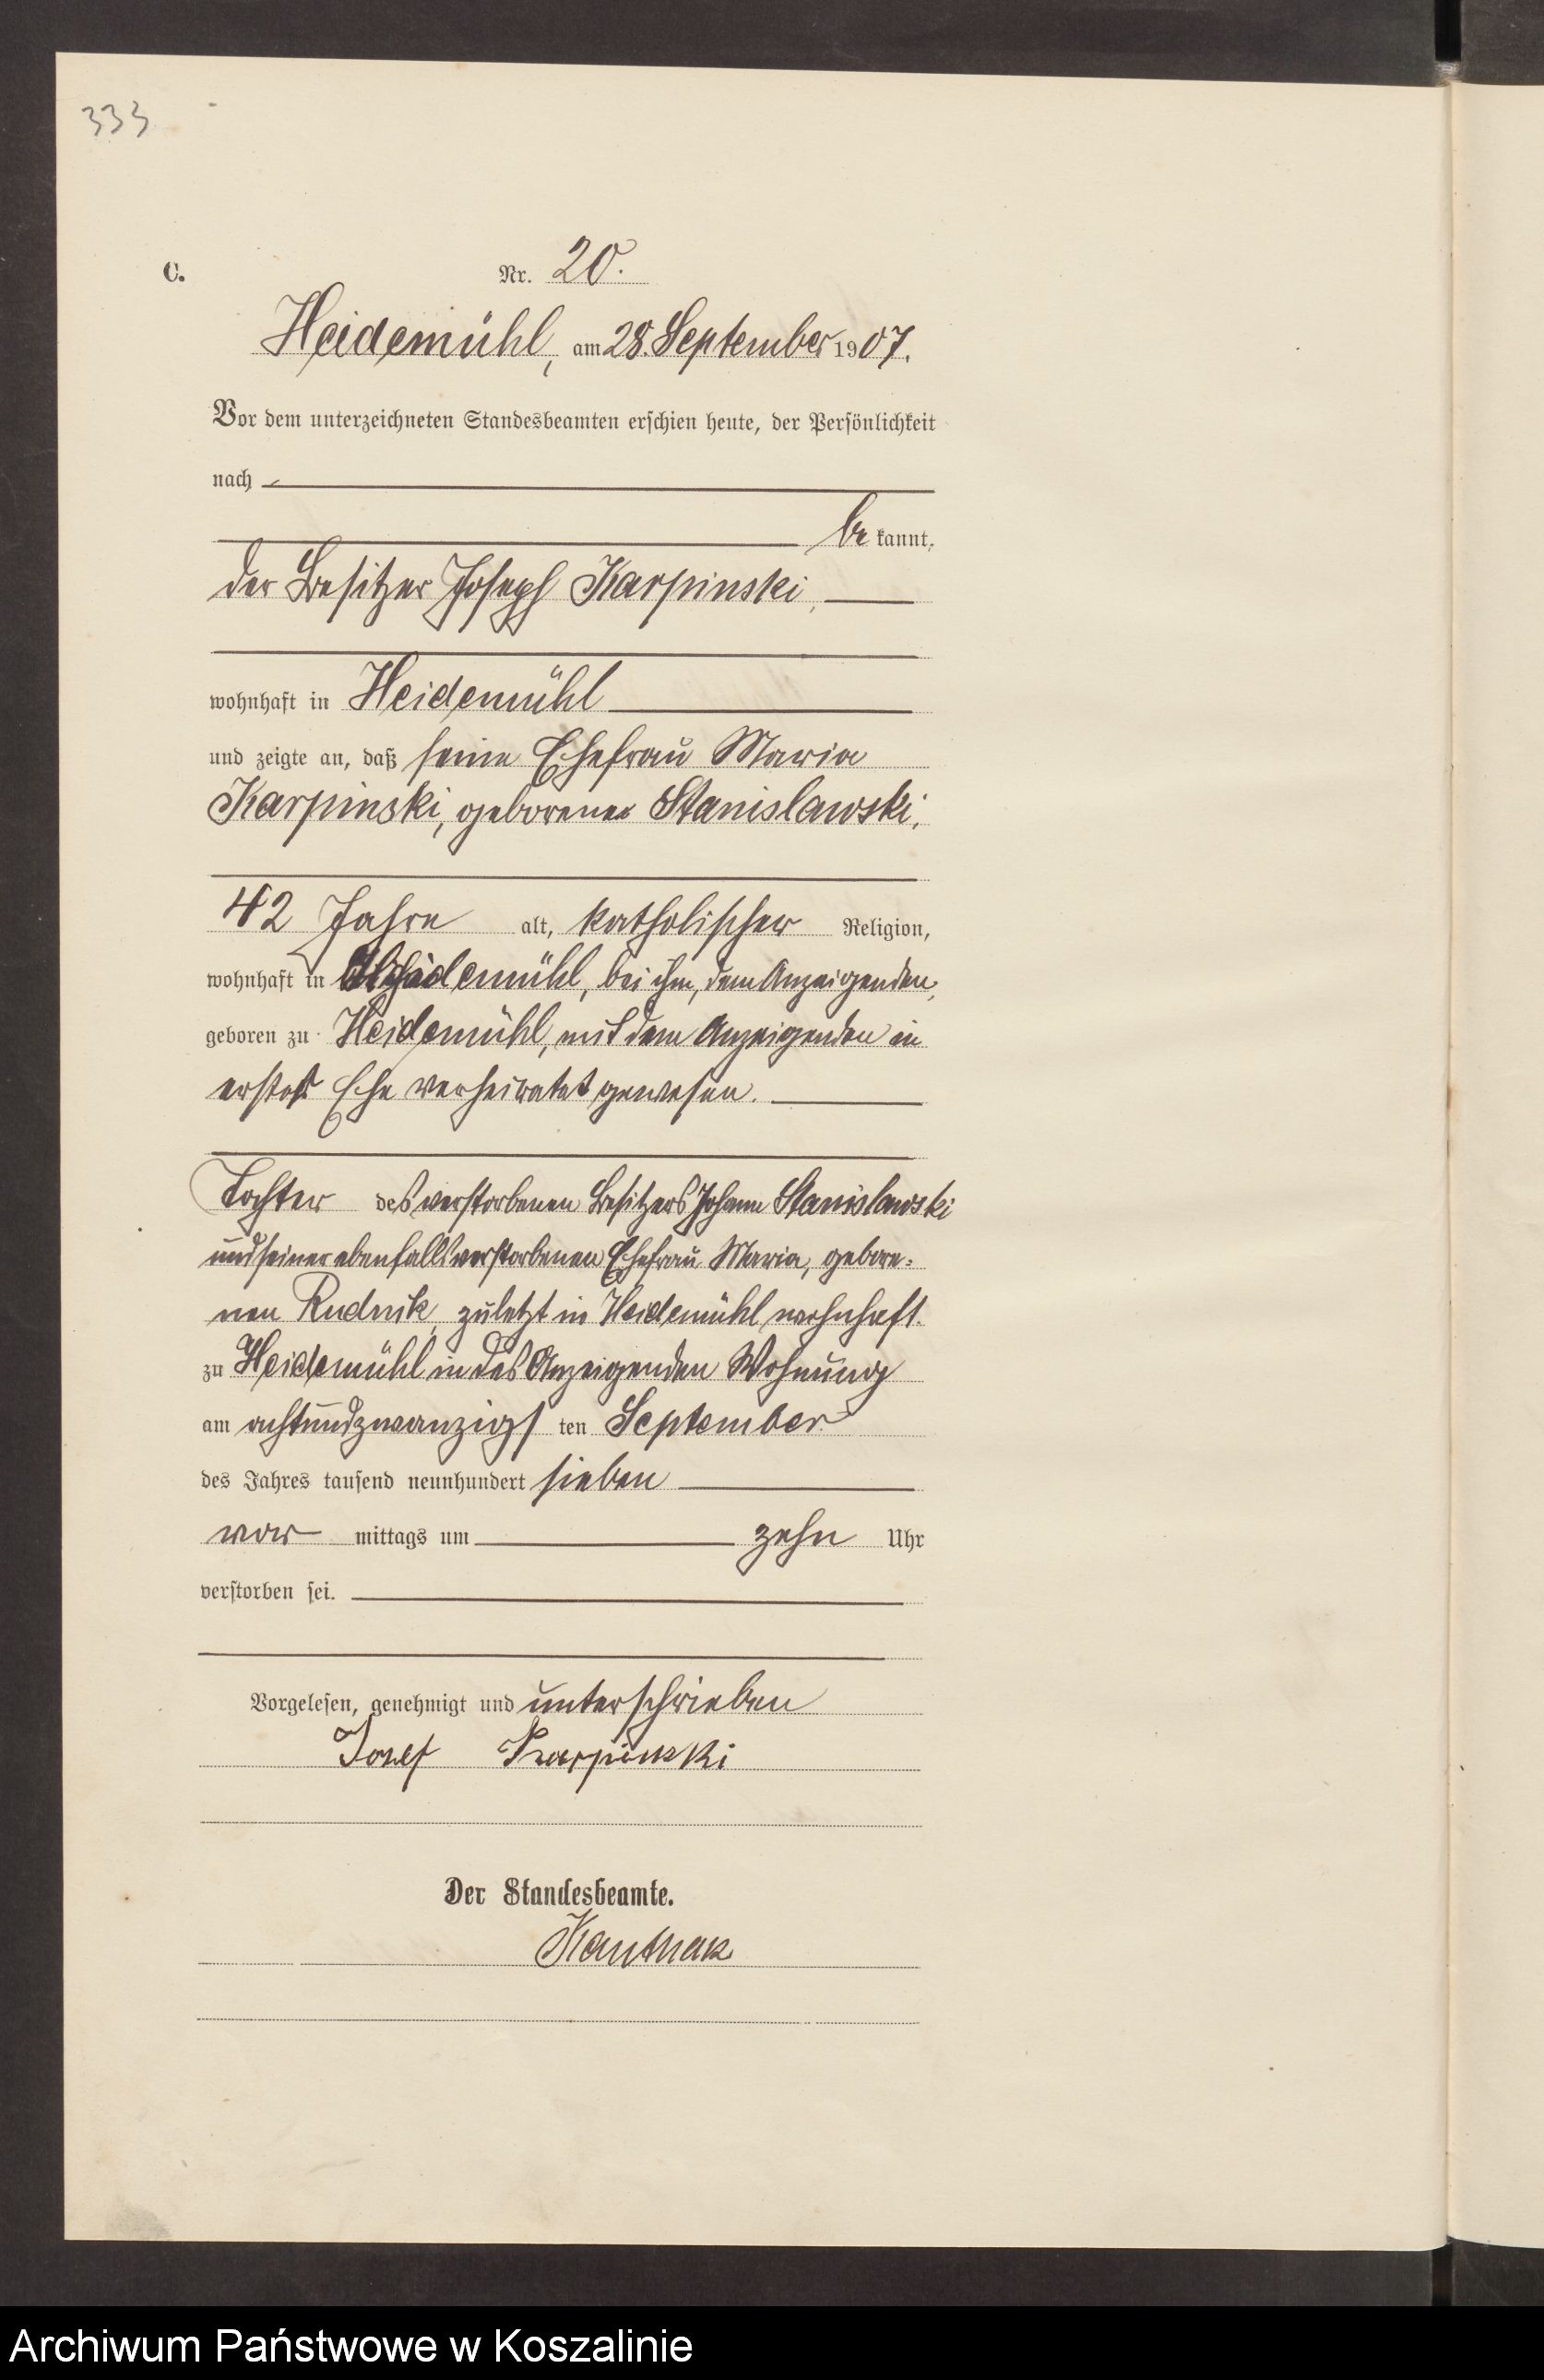 333
C.
Nr. 20.
Heidemühl, am 28. September 1907.
Vor dem unterzeichneten Standesbeamten erschien heute, der Persönlichkeit
nach
be kannt,
der Besitzer Joseph Karpinski,
wohnhaft in Heidemühl
und zeigte an, daß seine Ehefrau Maria
Karpinski, geborene Stanislawski,
42 Jahre alt, katholischer Religion,
wohnhaft in Heidemühl, bei ihm, dem Anzeigenden,
geboren zu Heidemühl, mit dem Anzeigenden in
erster Ehe verheiratet gewesen.
Tochter des verstorbenen Besitzers Johann Stanislawski
und seiner ebenfalls verstorbenen Ehefrau Maria, gebore-
nen Rudnik, zuletzt in Heidemühl wohnhaft.
zu Heidemühl in des Anzeigenden Wohnung
am achtundzwanzigs ten September
des Jahres tausend neunhundert sieben
vor mittags um zehn Uhr
verstorben sei.
Vorgelesen, genehmigt und unterschrieben
Josef Karpinski
Der Standesbeamte.
Archiwum Państwowe w Koszalinie